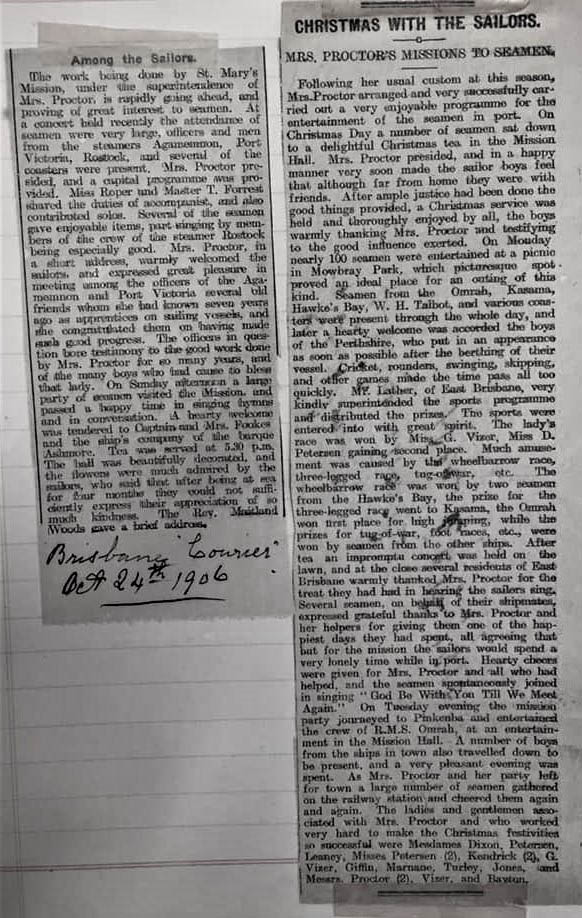 Among the Sailors.
The work being done by St. Mary's
Mission, under the superintendence of
Mrs. Proctor, is rapidly going ahead, and
proving of great interest to seamen. At
a concert held recently the attendance of
seamen were very large, officers and men
from the steamers Agamemnon, Port
Victoria, Rostock, and several of the
coasters were present. Mrs. Proctor pre-
sided, and a capital programme was pro-
vided. Miss Roper and Master T. Forrest
shared the duties of accompanist, and also
contributed solos. Several of the seamen
gave enjoyable items, part singing by mem-
bers of the crew of the steamer Rostock
being especially good. Mrs. Proctor, in
a short address, warmly welcomed the
sailors, and expressed great pleasure in
meeting among the officers of the Aga-
memnon and Port Victoria several old
friends whom she had known seven years
ago as apprentices on sailing vessels, and
she congratulated them on having made
such good progress. The officers in ques-
tion bore testimony to the good work done
by Mrs. Proctor for so many years, and
of the many boys who had cause to bless
that lady. On Sunday afternoon a large
party of seamen visited the Mission, and
passed a happy time in singing hymns
and in conversation. A hearty welcome
was tendered to Captain and Mrs. Fookes
and the ship's company of the barque
Ashmore. Tea was served at 5.30 p.m.
The hall was beautifully decorated, and
the flowers were much admired by the
sailors, who said that after being at sea
for four months they could not suffi-
ciently express their appreciation of so
much kindness. The Rev. Maitland
Woods gave a brief address.
Brisbane "Courier"
Oct 24th 1906
CHRISTMAS WITH THE SAILORS.
MRS. PROCTOR'S MISSIONS TO SEAMEN.
Following her usual custom at this season,
Mrs. Proctor arranged and very successfully car-
ried out a very enjoyable programme for the
entertainment of the seamen in port. On
Christmas Day a number of seamen sat down
to a delightful Christmas tea in the Mission
Hall. Mrs. Proctor presided, and in a happy
manner very soon made the sailor boys feel
that although far from home they were with
friends. After ample justice had been done the
good things provided, a Christmas service was
held and thoroughly enjoyed by all, the boys
warmly thanking Mrs. Proctor and testifying
to the good influence exerted. On Monday
nearly 100 seamen were entertained at a picnic
in Mowbray Park, which picturesque spot
proved an ideal place for an outing of this
kind. Seamen from the Omrah, Kasama,
Hawke's Bay, W. H. Talbot, and various coas-
ters were present through the whole day, and
later a hearty welcome was accorded the boys
of the Perthshire, who put in an appearance
as soon as possible after the berthing of their
vessel. Cricket, rounders, swinging, skipping,
and other games made the time pass all too
quickly. Mr. Lather, of East Brisbane, very
kindly superintended the sports programme
and distributed the prizes. The sports were
entered into with great spirit. The lady's
race was won by Miss G. Vizer, Miss D.
Petersen gaining second place. Much amuse-
ment was caused by the wheelbarrow race,
three-legged race, tug-of-war, etc. The
wheelbarrow race was won by two seamen
from the Hawke's Bay, the prize for the
three-legged race went to Kasama, the Omrah
won first place for high jumping, while the
prizes for tug-of-war, foot races, etc., were
won by seamen from the other ships. After
tea an impromptu concert was held on the
lawn, and at the close several residents of East
Brisbane warmly thanked Mrs. Proctor for the
treat they had had in hearing the sailors sing.
Several seamen, on behalf of their shipmates,
expressed grateful thanks to Mrs. Proctor and
her helpers for giving them one of the hap-
piest days they had spent, all agreeing that
but for the mission the sailors would spend a
very lonely time while in port. Hearty cheers
were given for Mrs. Proctor and all who had
helped, and the seamen spontaneously joined
in singing "God Be With You Till We Meet
Again." On Tuesday evening the mission
party journeyed to Pinkenba and entertained
the crew of R.M.S. Omrah, at an entertain-
ment in the Mission Hall. A number of boys
from the ships in town also travelled down to
be present, and a very pleasant evening was
spent. As Mrs. Proctor and her party left
for town a large number of seamen gathered
on the railway station and cheered them again
and again. The ladies and gentlemen asso-
ciated with Mrs. Proctor and who worked
very hard to make the Christmas festivities
so successful were Mesdames Dixon, Petersen,
Leaney, Misses Petersen (2), Kendrick (2), G.
Vizer, Giffin, Marnane, Turley, Jones, and
Messrs. Proctor (2), Vizer, and Bayton.